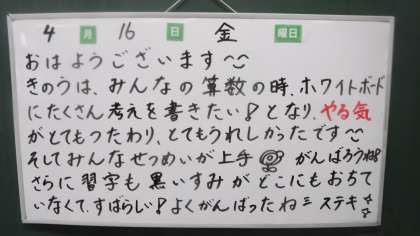 4月16日金曜日
おはようございます
きのうは、みんなの算数の時、ホワイトボード
にたくさん考えを書きたい!となり、やる気
がとてもつたわり、とてもうれしかったです
そしてみんなせつめいが上手 がんばろうね!
さらに習字も黒いすみがどこにもおちて
いなくて、すばらしい!よくがんばったね ステキ